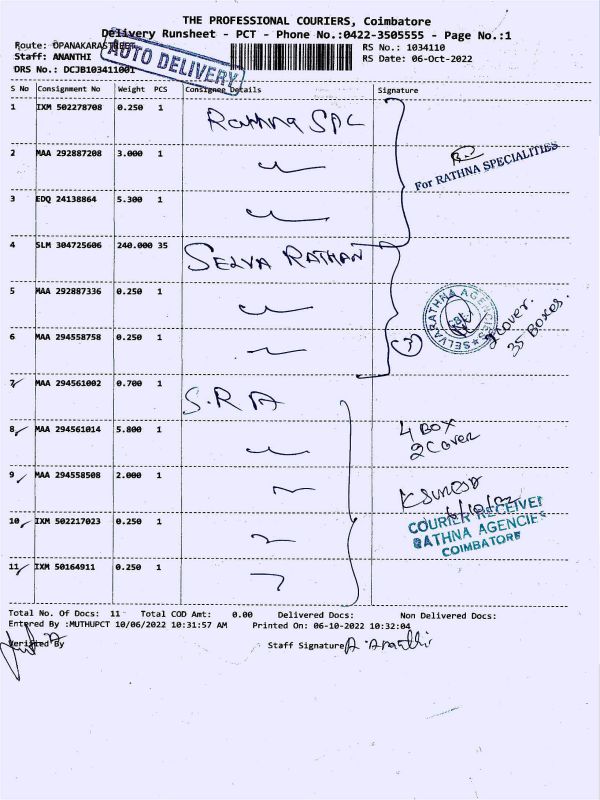 THE PROFESSIONAL COURIERS, Coimbatore
Delivery Runsheet - PCT - Phone No.:0422-3505555 - Page No.:1
Route: OPANAKARASTREET
Staff: ANANTHI
DRS No.: DCJB103411001
AUTO DELIVERY
RS No.: 1034110
RS Date: 06-Oct-2022
S No Consignment No Weight PCS Consignee Details Signature
1 IXM 502278708 0.250 1 Rathna SPL
2 MAA 292887208 3.000 1
For RATHNA SPECIALITIES
3 EDQ 24138864 5.300 1
4 SLM 304725606 240.000 35 SELVA RATHAN
5 MAA 292887336 0.250 1
SELVARATHNA AGENCIES
2 cover.
35 Boxes.
6 MAA 294558758 0.250 1
7 MAA 294561002 0.700 1 S.R A
8 MAA 294561014 5.800 1
4 BOX
2 Cover
9 MAA 294558508 2.000 1
6/10/22
COURIER RECEIVED
RATHNA AGENCIES
COIMBATORE
10 IXM 502217023 0.250 1
11 IXM 50164911 0.250 1
Total No. Of Docs: 11 Total COD Amt: 0.00 Delivered Docs: Non Delivered Docs:
Entered By :MUTHUPCT 10/06/2022 10:31:57 AM Printed On: 06-10-2022 10:32:04
Verified By Staff Signature A. Ananthi